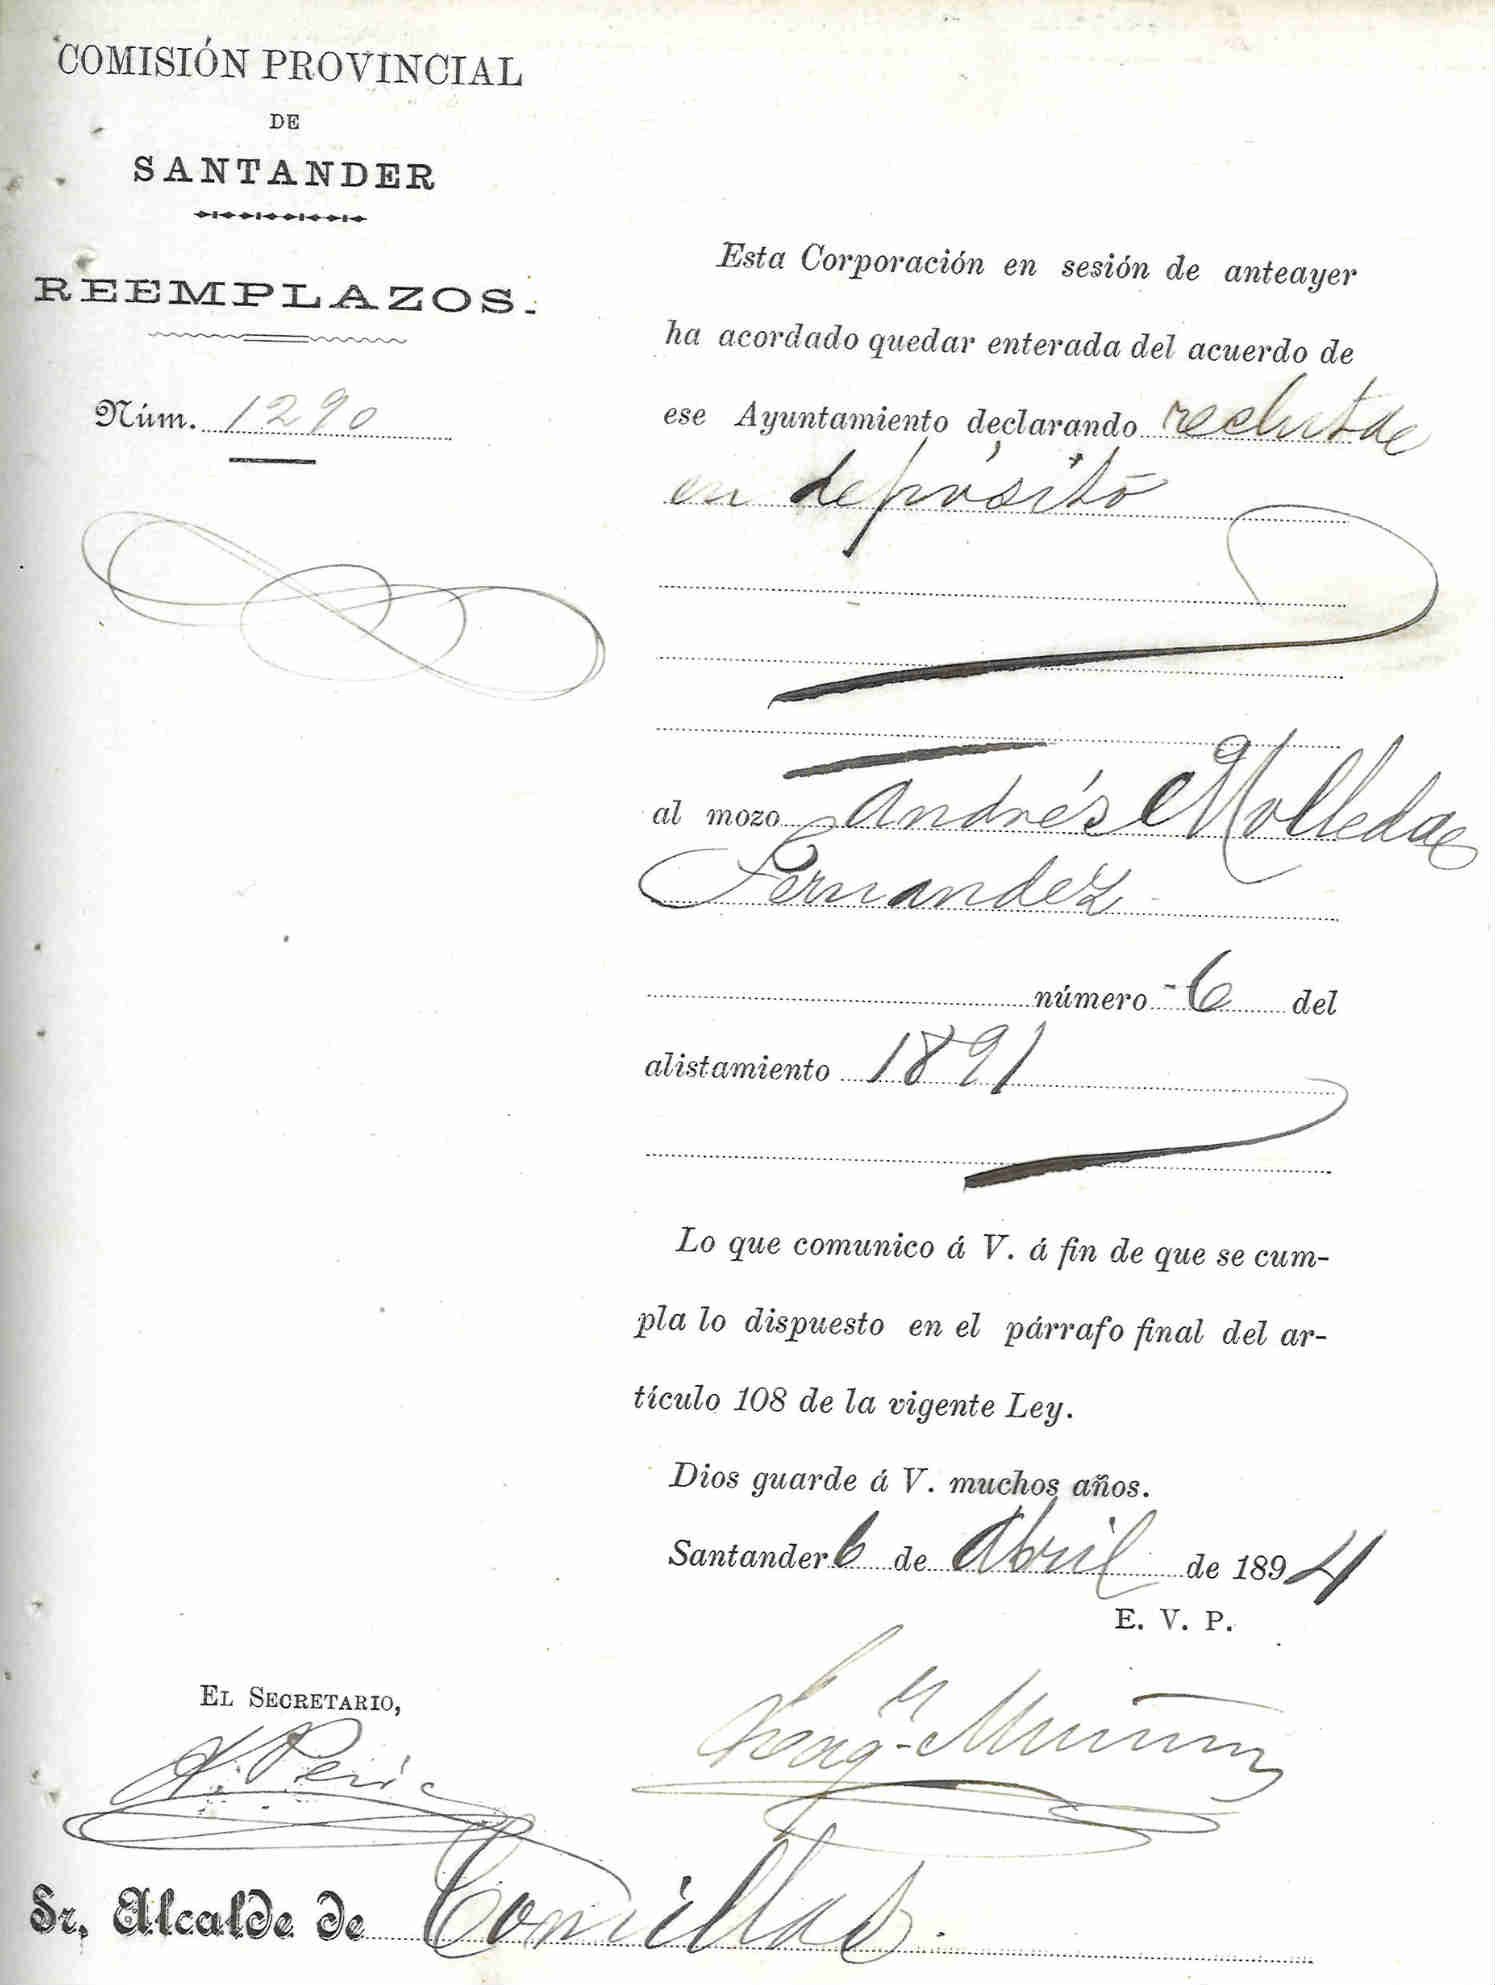 COMISIÓN PROVINCIAL
DE
SANTANDER
REEMPLAZOS.
Núm. 1290
Esta Corporación en sesión de anteayer
ha acordado quedar enterada del acuerdo de
ese Ayuntamiento declarando recluta
en depósito
al mozo Andrés Molleda
Fernandez
número 6 del
alistamiento 1891
Lo que comunico á V. á fin de que se cum-
pla lo dispuesto en el párrafo final del ar-
tículo 108 de la vigente Ley.
Dios guarde á V. muchos años.
Santander 6 de Abril de 1894
E. V. P.
EL SECRETARIO,
Sr. Alcalde de Comillas.